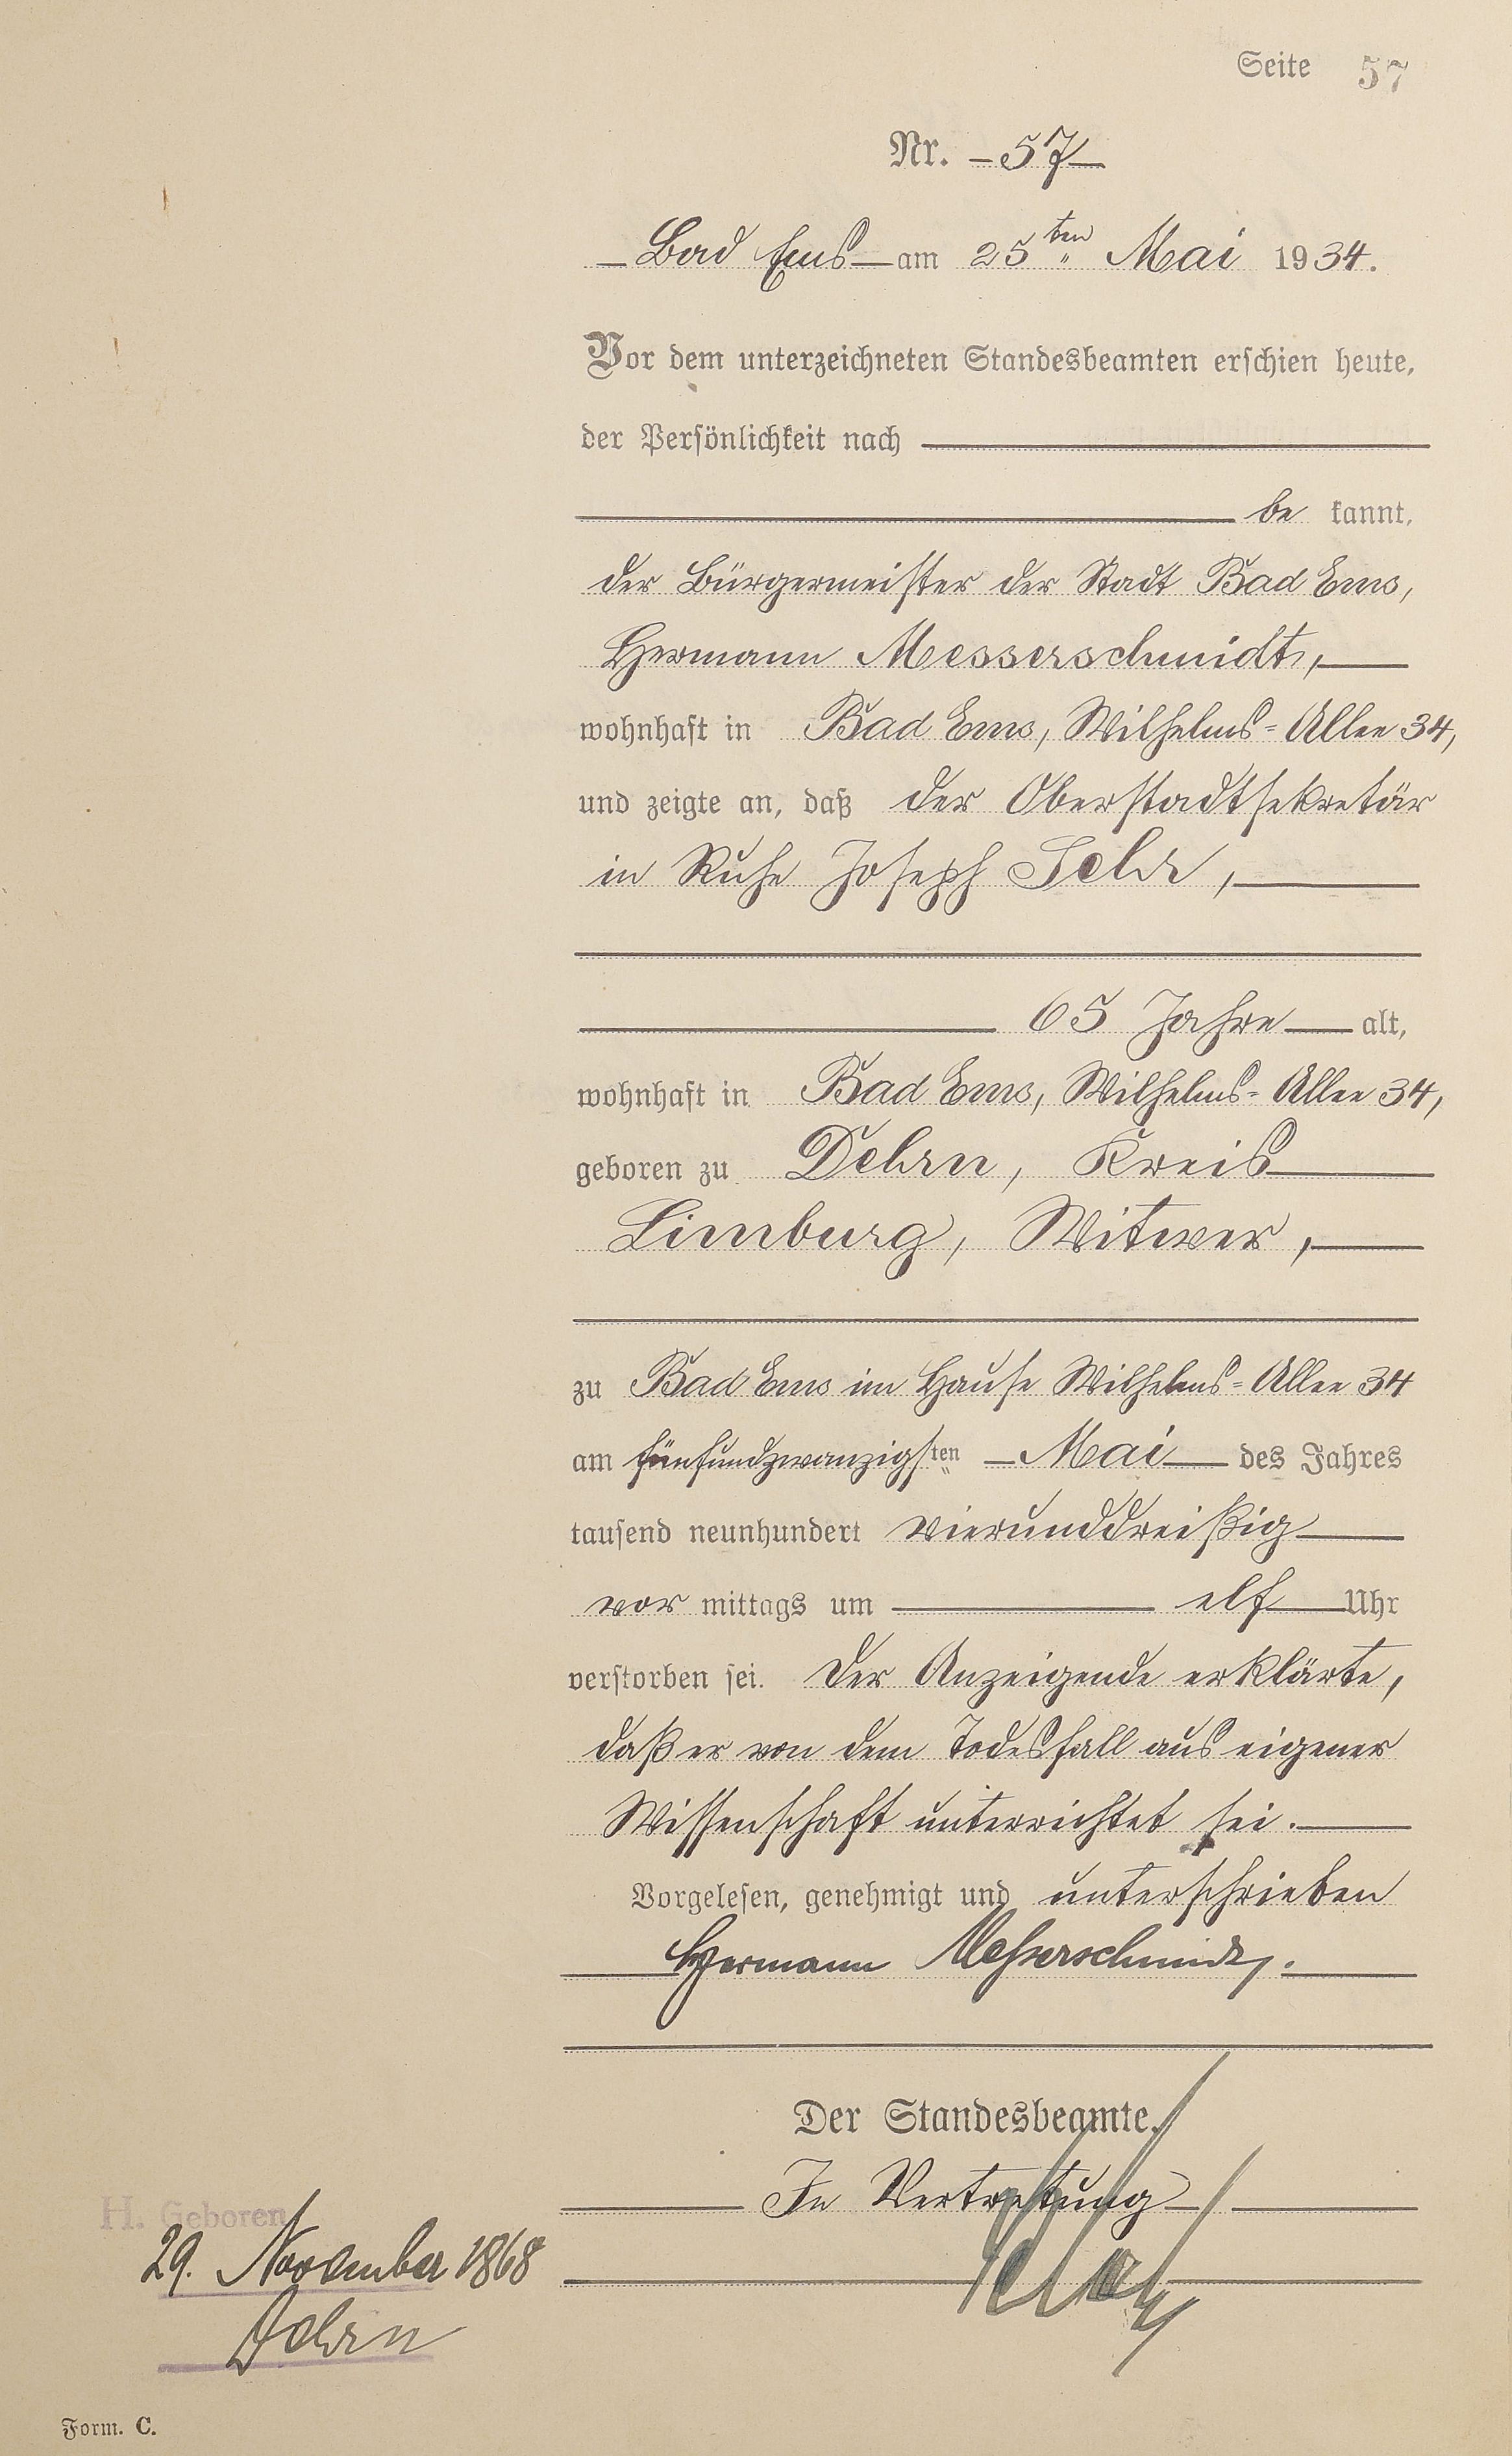 Seite 57
Nr. 57
Bad Ems am 25ten Mai 1934.
Vor dem unterzeichneten Standesbeamten erschien heute,
der Persönlichkeit nach
be kannt,
der Bürgermeister der Stadt Bad Ems,
Hermann Messerschmidt,
wohnhaft in Bad Ems, Wilhelms-Allee 34,
und zeigte an, daß der Oberstadtsekretär
in Ruhe Joseph
65 Jahre alt,
wohnhaft in Bad Ems, Wilhelms-Allee 34,
geboren zu Dehrn, Kreis
Limburg, Witwer,
zu Bad Ems im Hause Wilhelms-Allee 34
am fünfundzwanzigsten Mai des Jahres
tausend neunhundert vierunddreißig
vor mittags um elf Uhr
verstorben sei. Der Anzeigende erklärte,
daß er von dem Todesfall aus eigener
Wissenschaft unterrichtet sei.
Vorgelesen, genehmigt und unterschrieben
Hermann Messerschmidt.
Der Standesbeamte.
In Vertretung
H. Geboren
29. November 1868
Dehrn
Form. C.